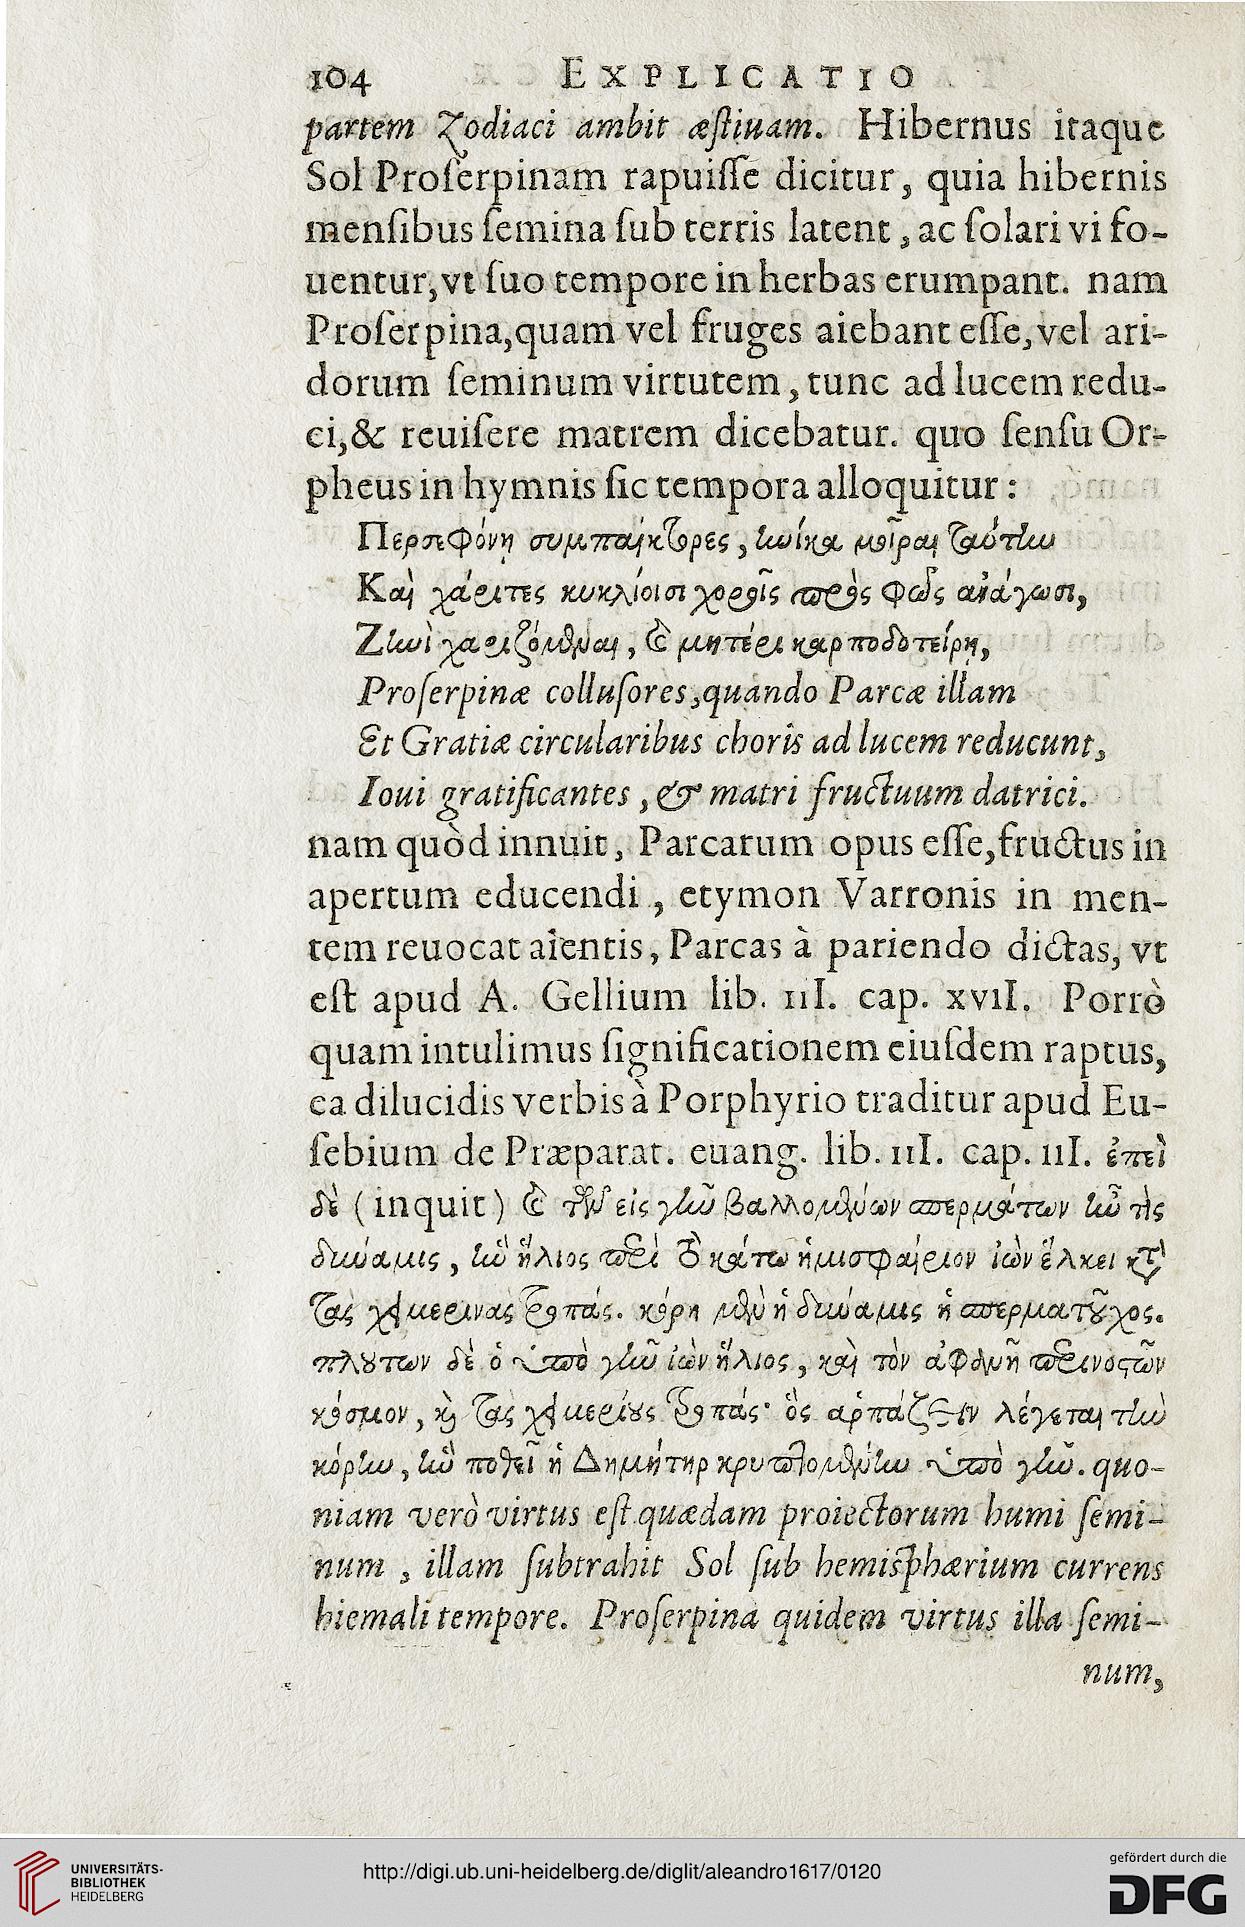 104 EXPLICATIO
partem Zodiaci ambit æſtiuam. Hibernus itaque
Sol Proſerpinam rapuiſſe dicitur, quia hibernis
menſibus ſemina ſub terris latent, ac ſolari vi fo-
uentur, vt ſuo tempore in herbas erumpant. nam
Proſerpina, quam vel fruges aiebant eſſe, vel ari-
dorum ſeminum virtutem, tunc ad lucem redu-
ci, & reuiſere matrem dicebatur. quo ſenſu Or-
pheus in hymnis ſic tempora alloquitur:
Περσεφόνη συμπαίκτορες, ἡνίκα μοῖραι ταύτην
Καὶ χάριτες κυκλίοισι χοροῖς πρὸς φῶς ἀνάγωσι,
Ζηνὶ χαριζόμεναι, καὶ μητέρι καρποδοτείρῃ,
Proſerpinæ colluſores, quando Parcæ illam
Et Gratiæ circularibus choris ad lucem reducunt,
Ioui gratificantes, & matri fructuum datrici.
nam quòd innuit, Parcarum opus eſſe, fructus in
apertum educendi, etymon Varronis in men-
tem reuocat aientis, Parcas à pariendo dictas, vt
eſt apud A. Gellium lib. III. cap. XVII. Porrò
quam intulimus ſignificationem eiuſdem raptus,
ea dilucidis verbis à Porphyrio traditur apud Eu-
ſebium de Præparat. euang. lib. III. cap. III. ἐπεὶ
δὲ (inquit) καὶ τῶν εἰς γῆν βαλλομένων σπερμάτων ἦν τὶς
δύναμις, ἣν ἥλιος περὶ τὸ κάτω ἡμισφαίριον ἰὼν ἕλκει κτ'
τας χειμερινας τροπάς. κόρη μὲν ἡ δύναμις ἡ σπερματοῦχος.
πλούτων δὲ ὁ ὑπὸ γῆν ἰὼν ἥλιος, καὶ τὸν ἀφανῆ περινοστῶν
κόσμον, καὶ τας χειμερίους τροπάς· ὃς ἁρπάζειν λέγεται τὴν
κόρην, ἣν ποθεῖ ἡ Δημήτηρ κρυπτομένην ὑπὸ γῆν. quo-
niam verò virtus eſt quædam proiectorum humi ſemi-
num, illam ſubtrahit Sol ſub hemiſphærium currens
hiemali tempore. Proſerpina quidem virtus illa ſemi-
num,
UNIVERSITÄTS-
BIBLIOTHEK
HEIDELBERG
http://digi.ub.uni-heidelberg.de/diglit/aleandro1617/0120
gefördert durch die
DFG